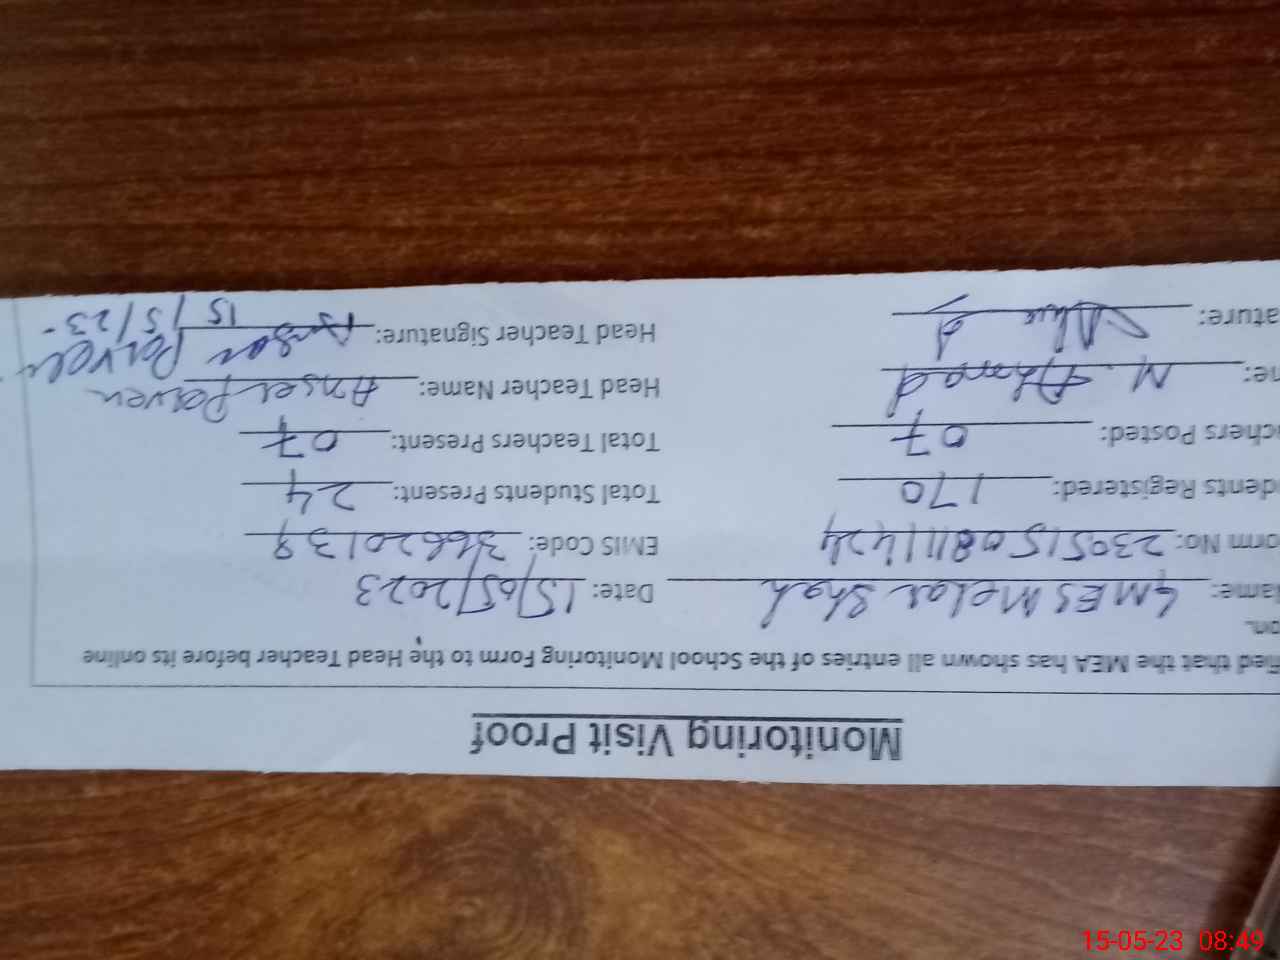 Monitoring Visit Proof
fied that the MEA has shown all entries of the School Monitoring Form to the Head Teacher before its online
on.
ame: GMES Melar Shah Date: 15/05/2023
orm No: 230515081111424 EMIS Code: 36620139
dents Registered: 170 Total Students Present: 24
chers Posted: 07 Total Teachers Present: 07
ne: M. Ahmad Head Teacher Name: Ansar Parven
ature: Head Teacher Signature: Ansar Parveen
15/5/23
15-05-23 08:49